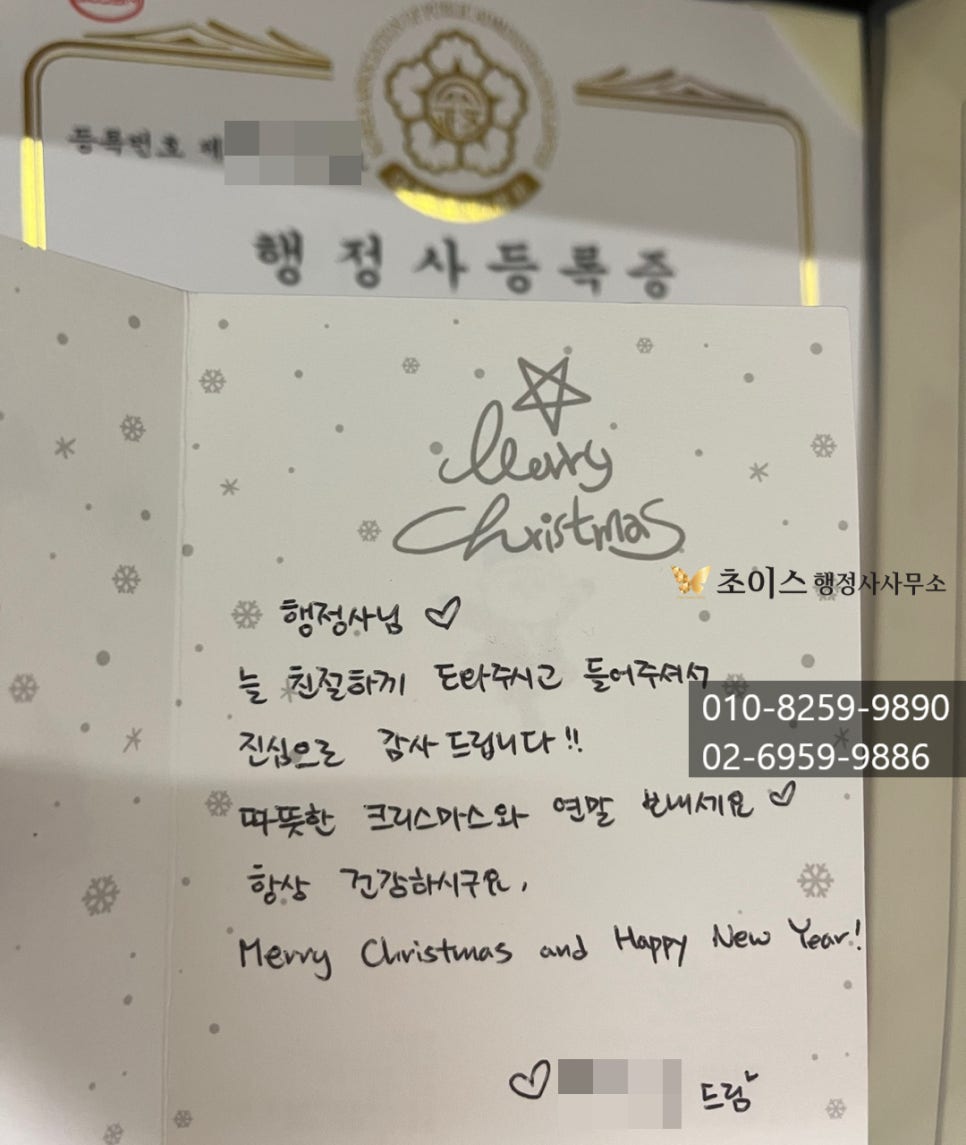 등록번호 제
행정사등록증
Merry
Christmas
초이스 행정사사무소
행정사님 ♡
늘 친절하게 도와주시고 들어주셔서
010-8259-9890
진심으로 감사드립니다!!
02-6959-9886
따뜻한 크리스마스와 연말 보내세요 ♡
항상 건강하시구요,
Merry Christmas and Happy New Year!
♡ 드림